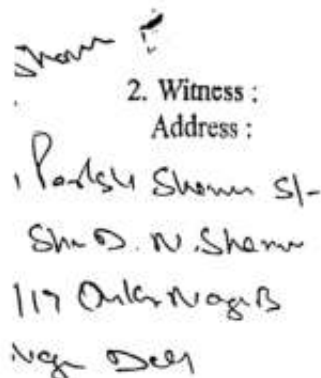 Sharma
2. Witness :
Address :
Sharma S/-
Sh. D. N. Sharma
117 Onkar Nagar B
Nagar Delhi